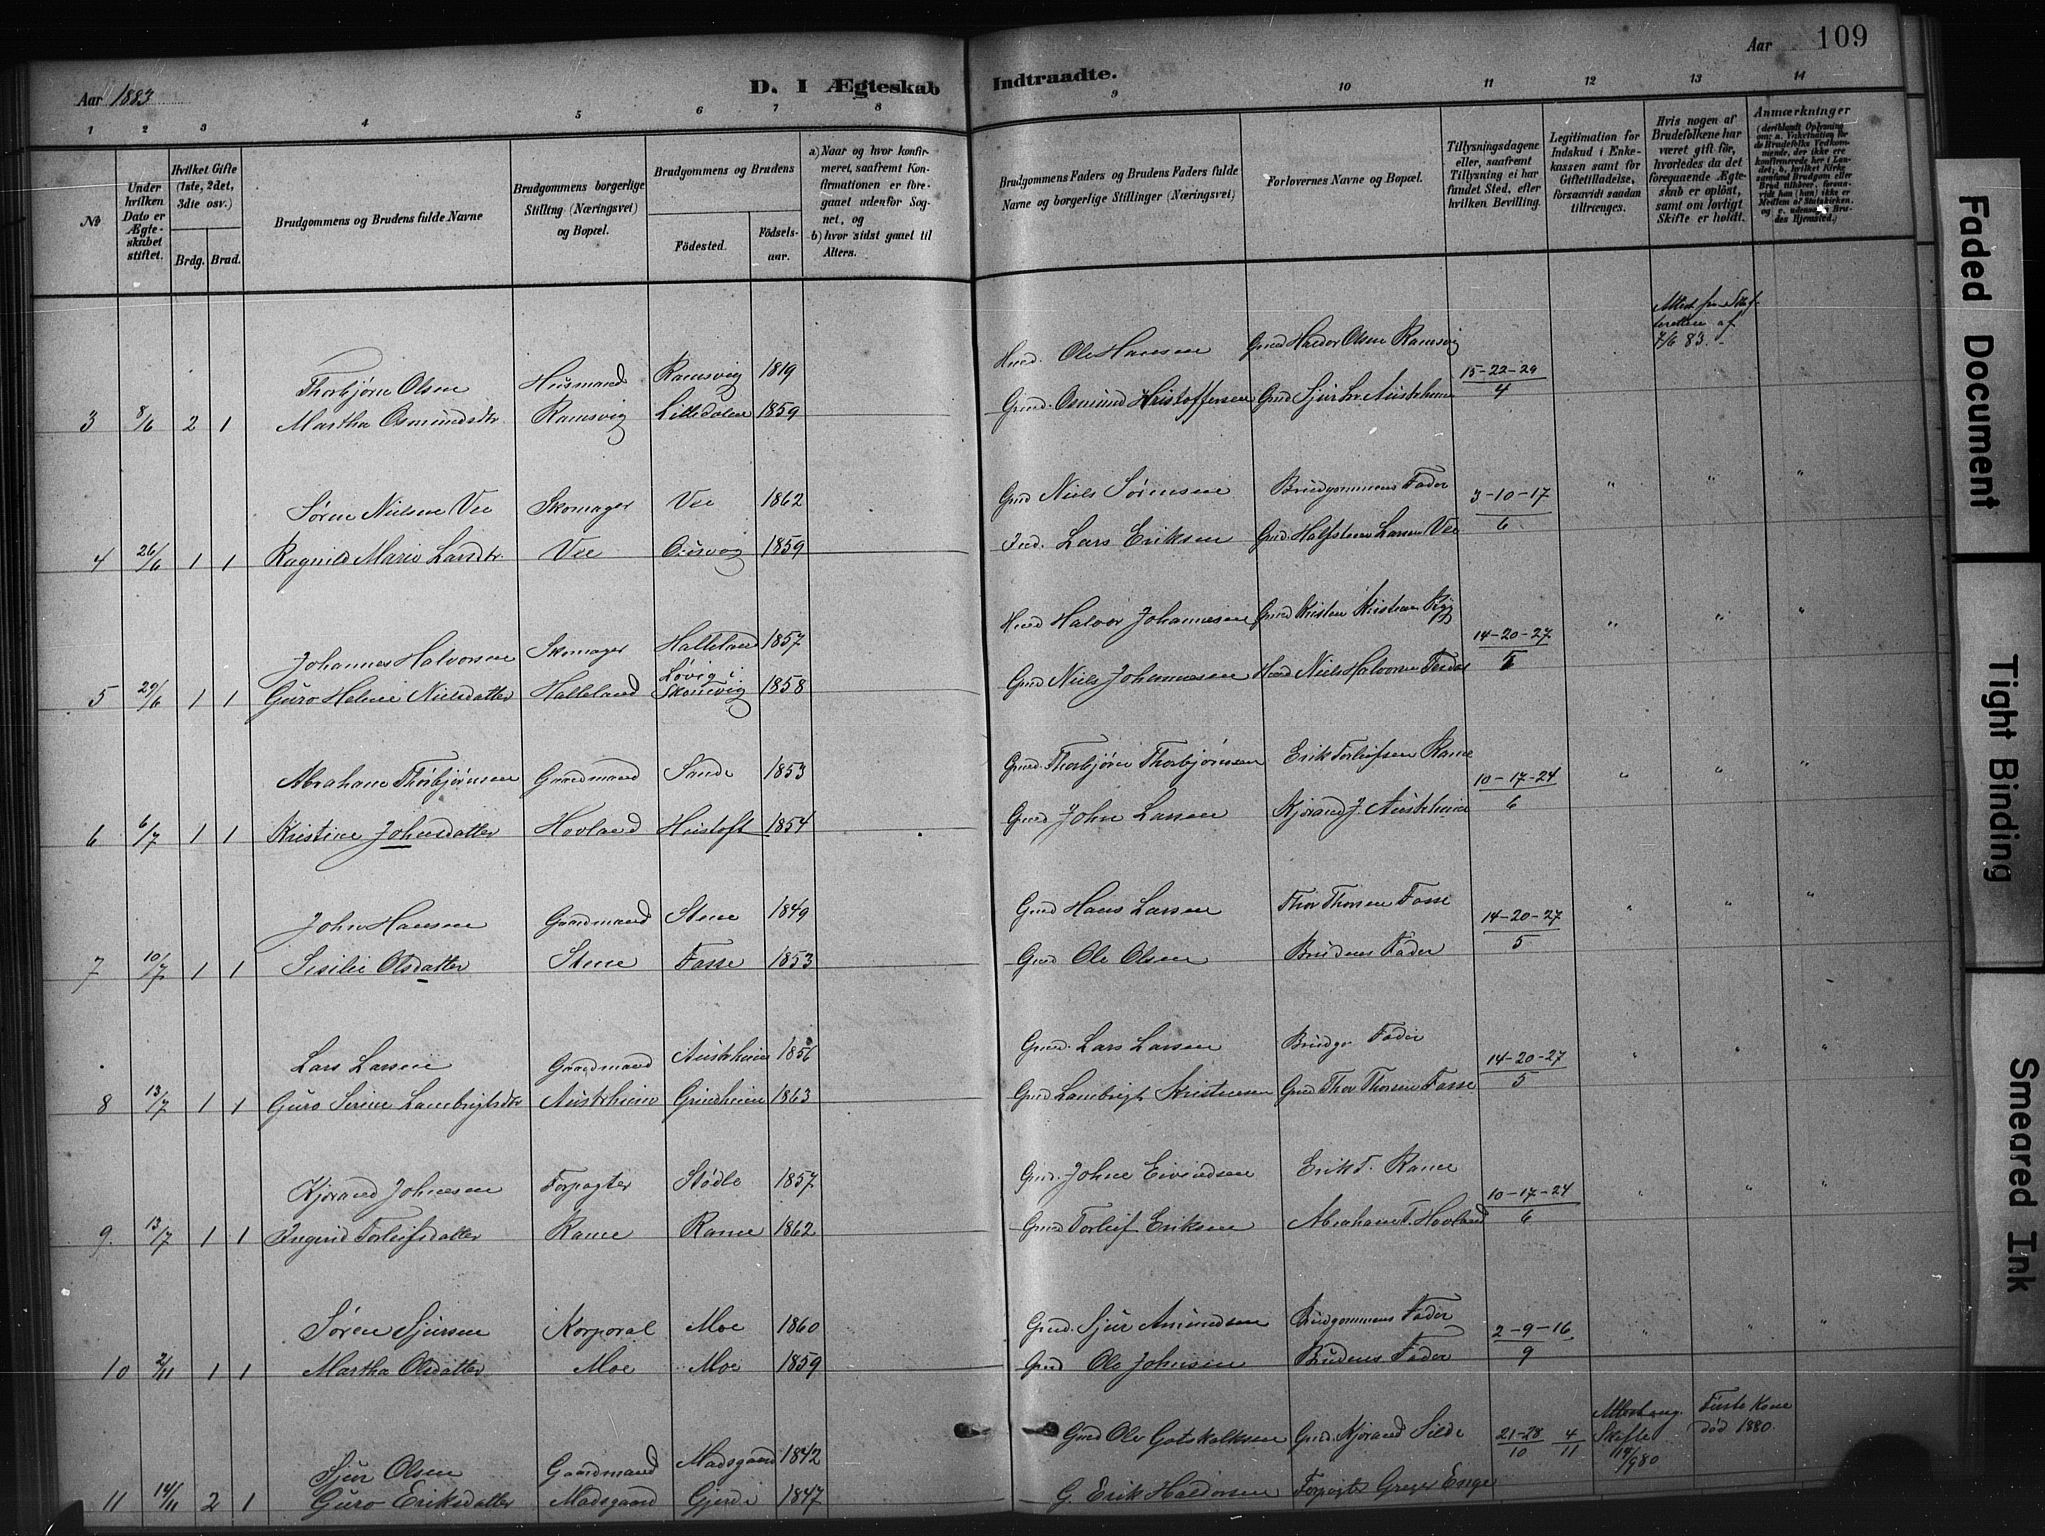 Aar 1883
D. I Ægteskab Indtraadte.
Aar 109
1 2 3 4 5 6 7 8 9 10 11 12 13 14
No
Under hvilken Dato er Ægteskabet stiftet.
Hvilket Gifte (1ste, 2det, 3die osv.)
Brdg. Brud.
Brudgommens og Brudens fulde Navne
Brudgommens borgerlige Stilling (Næringsvei) og Bopæl.
Brudgommens og Brudens
Födested. Födsels-aar.
a) Naar og hvor konfirmeret, saafremt Konfirmationen er foregaaet udenfor Sognet, og
b) hvor sidst gaaet til Alters.
Brudgommens Faders og Brudens Faders fulde Navne og borgerlige Stillinger (Næringsvei)
Forlovernes Navne og Bopæl.
Tillysningsdagene eller, saafremt Tillysning ei har fundet Sted, efter hvilken Bevilling.
Legitimation for Indskud i Enkekassen samt for Giftetilladelse, forsaavidt saadan tiltrænges.
Hvis nogen af Brudefolkene har været gift för, hvorledes da det foregaaende Ægteskab er oplöst, samt om lovligt Skifte er holdt.
Anmærkninger
Thorbjørn Olsen Husmand Ramsvig 1819 Hmd. Ole Hansen Gmd Haldor Olsen Ramsvig 15-22-29
3 8/6 2 1 Martha Osmundsdtr. Ramsvig Lilledalen 1859 Gmd. Osmund Kristoffersen 4
7/6 83.
Søren Nielsen Vee Skomager Vee 1862 Gmd Niels Sørensen Brudgommens Fader 3-10-17 " " "
4 26/6 1 1 Ragnild Marie Larsdtr. Vee 1859 Lars Eriksen Gmd. Halfsteen Larsen Vee 6
Johannes Halvorsen Skomager Halleland 1857 Hmd Halvor Johannesen Gmd Kristen Kristensen 14-20-27 " " "
5 29/6 1 1 Guro Helene Nielsdatter Halleland Løvig i Skonevig 1858 Gmd Niels Johannesen Niels Halvorsen 5
Abraham Thorbjørnsen Gaardmand Sande 1853 Gmd. Thorbjørn Thorbjørnsen Erik Torleifsen Rame 10-17-24 " " "
6 6/7 1 1 Kristine Johnsdatter Hovland Hustoft 1854 Gmd John Larsen Kjørand J. Austrheim 6
John Hansen Gaardmand Stene 1849 Gmd Hans Larsen Thor Thorsen Fosse 14-20-27 " " "
7 10/7 1 1 Sisilie Olsdatter Stene Fosse 1853 Gmd Ole Olsen Brudens Fader 5
Lars Larsen Gaardmand Austrheim 1856 Gmd. Lars Larsen Brudg. Fader 14-20-27 " " "
8 13/7 1 1 Guro Serine Lambrigtsdtr Austrheim Grindheim 1863 Gmd Lambrigt Kristensen Gmd Thor Thorsen Fosse 5
Kjørand Johnesen Forpagter Stødle 1857 Gmd. Johne Eivindsen Erik T. Rame 10-17-24 " " "
9. 13/7 1 1 Ingerid Torleifsdatter Rame Rame 1862 Gmd Torleif Eriksen Abraham T. Hovland 6
Søren Sjursen Korporal Moe 1860 Gmd. Sjur Amundsen Brudgommens Fader 2-9-16 " " "
10 2/11 1 1 Martha Olsdatter Moe Moe 1859 Gmd Ole Johnsen Brudens Fader 9
Sjur Olsen Gaardmand Madsgaard 1842 Gmd Ole Gotskalksen Gmd. Kjørand Silde 21-28/10 4/11 Skifte Første Kone død 1880.
11 14/11 2 1 Guro Eriksdatter Madsgaard Gjerde 1847 G. Erik Haldorsen Forpagter Greger Enge
Faded Document
Tight Binding
Smeared Ink